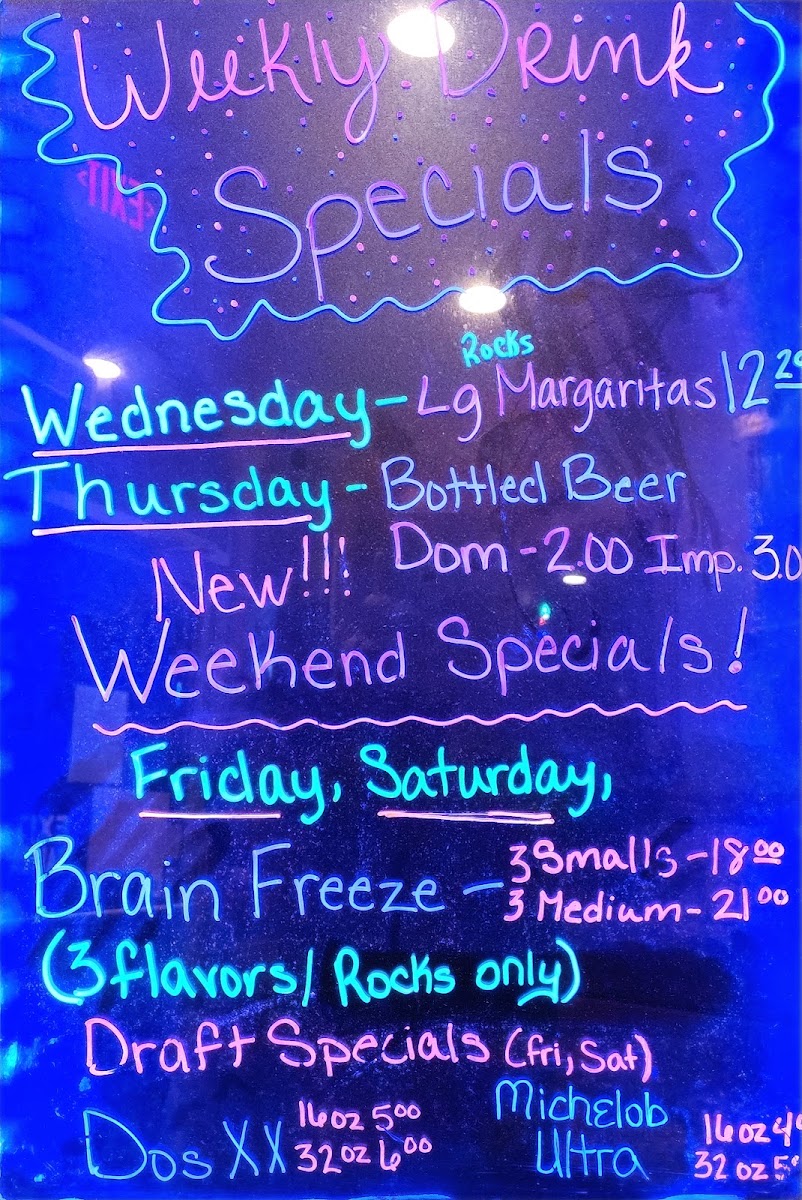 Weekly Drink
Specials
EXIT
Rocks
Wednesday - Lg Margaritas 12
Thursday - Bottled Beer
Dom - 2.00 Imp. 3.0
New!!!
Weekend Specials!
Friday, Saturday,
Brain Freeze - 3 Smalls - 18.00
3 Medium - 21.00
(3 flavors/ Rocks only)
Draft Specials (fri, Sat)
Dos XX 16oz 5.00
32oz 6.00
Michelob
Ultra
16oz 4
32oz 5